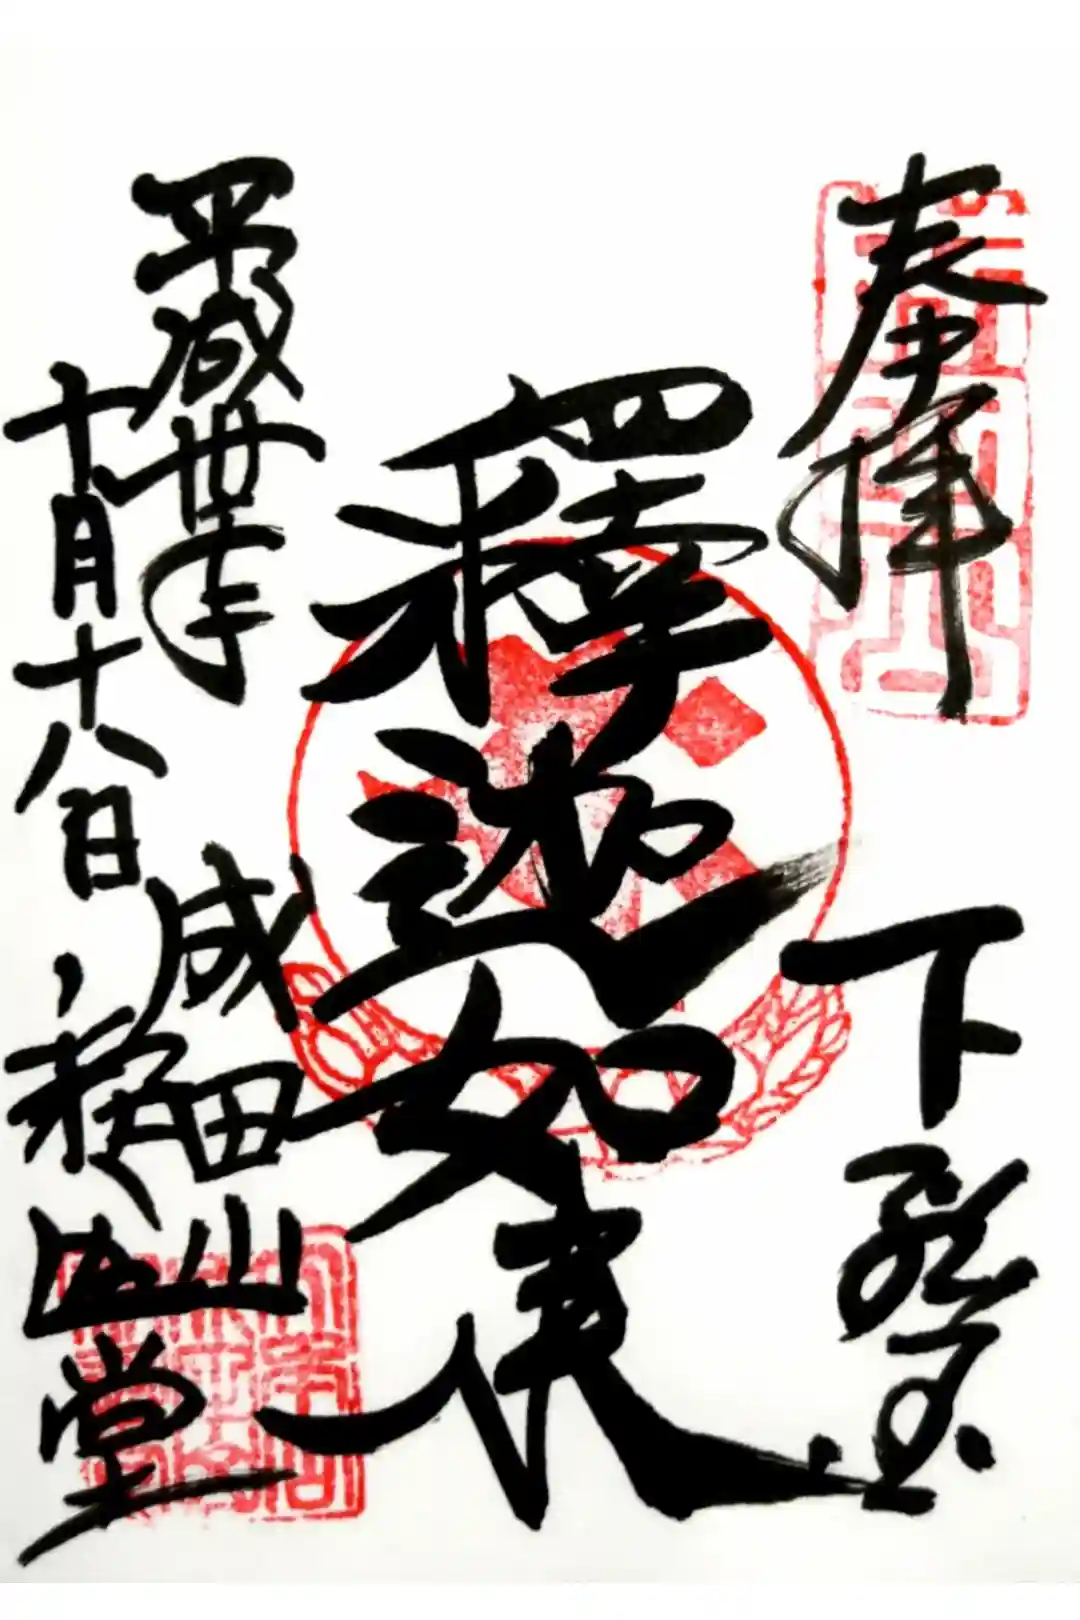 奉拝
下総国
釋迦如来
平成丗年
十月十八日
成田山
釈迦堂